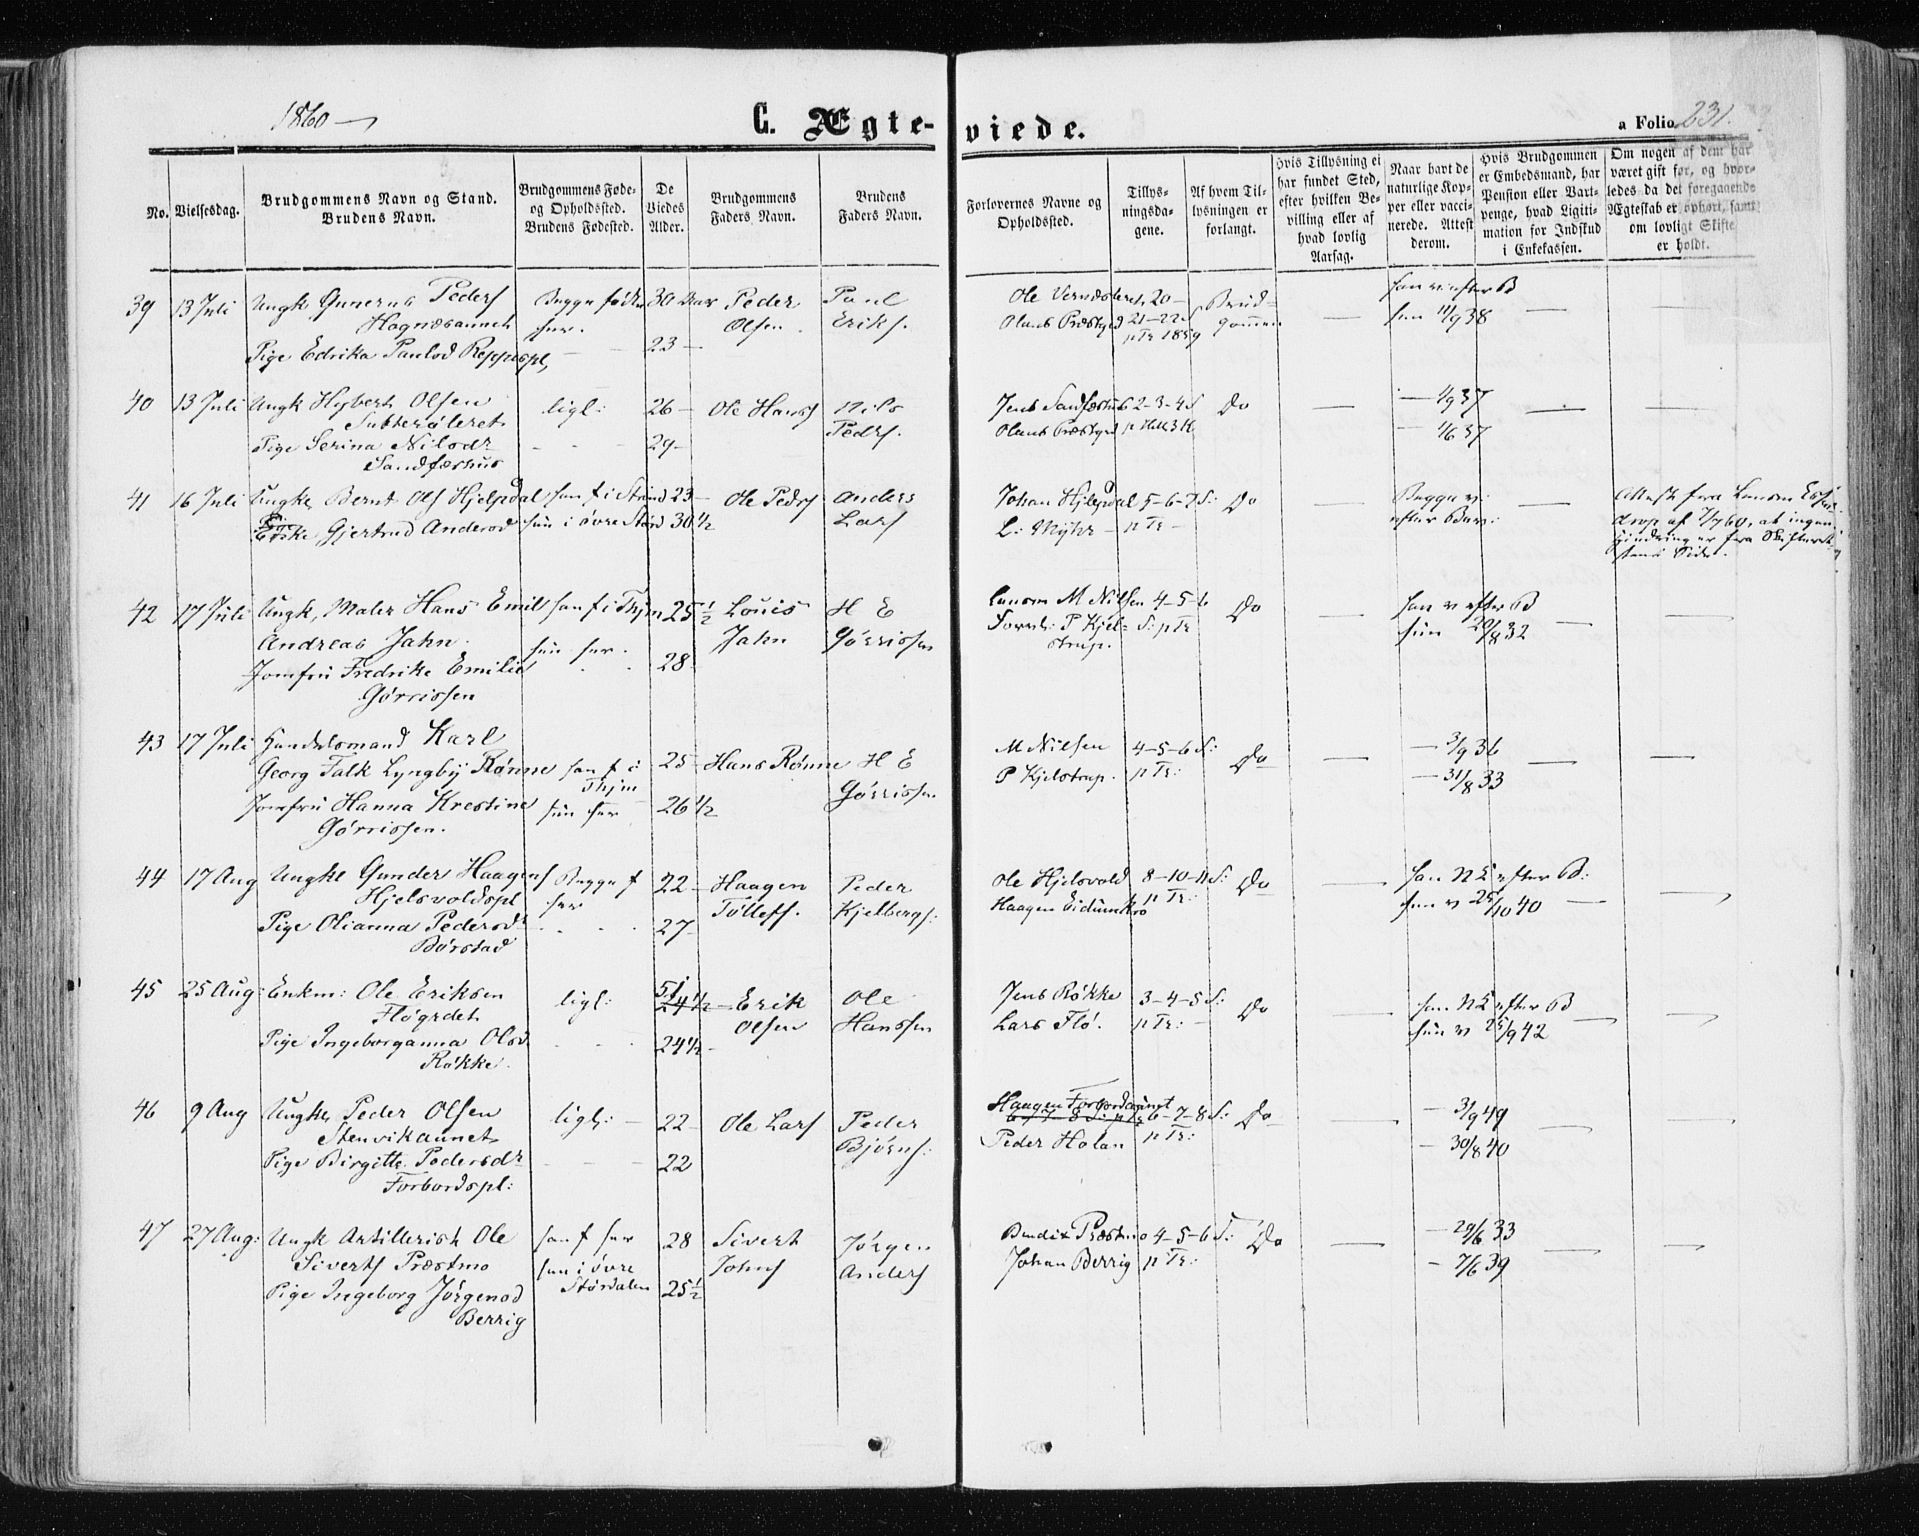 1860
C. Ægte-viede.
a Folio 231.
No.
Vielsesdag.
Brudgommens Navn og Stand.
Brudens Navn.
Brudgommens Føde-
og Opholdssted.
Brudens Fødested.
De
Viedes
Alder.
Brudgommens
Faders Navn.
Brudens
Faders Navn.
Forlovernes Navne og
Opholdssted.
Tillys-
ningsda-
gene.
Af hvem Til-
lysningen er
forlangt.
Hvis Tillysning ei
har fundet Sted,
efter hvilken Be-
villing eller af
hvad lovlig
Aarsag.
Naar havt de
naturlige Kop-
per eller vacci-
nerede. Attest
derom.
Hvis Brudgommen
er Embedsmand, har
Pension eller Vart-
penge, hvad Ligiti-
mation for Indskud
i Enkekassen.
Om nogen af dem har
været gift før, og hvor-
ledes da det foregaaende
Ægteskab er ophørt, samt
om lovligt Skifte
er holdt.
39 13 Juli Ungk Gunerus Peders Begge fødte 30 Aar Peder Paul
Hognæsaunet her. Olsen Eriks.
Pige Edrika Paulsd Reppespl, 23
Ole Vernæsleret 20- Brud-
Olaus Præstgrd 21-22 S gommen
p Tr 1859
han v efter B
hun 11/9 38
40 13 Juli Ungk Hybert Olsen ligl: 26 Ole Hanss Nils
Sutterøleret Peders.
Pige Serina Nilsdr 29
Sandfærhus
Jens Sandfærhus 2-3-4 S Do 4/9 37
Olaus Præstgrd 1/6 37
41 16 Juli Ungk, Bernt Ols Hjelpdal han f i Størd 23 Ole Peders Anders
Pige Gjertrud Andersd hun i øvre Størd 30 1/2 Lars
Johan Hjelpdal 5-6-7 S: Do Begge v:
L: Myhr p Tr efter Bar:
Attest fra
af 7/7 60, at ingen
Hindring er fra Skifteret-
tens Side.
42 17 Juli Ungk, Maler Hans Emil han f i Thjm 25 1/2 Louis H E
Andreas Jahn. hun her. Jahn Gørrissen
Jomfru Fredrike Emilie 28
Gørrissen
M Nilsen 4-5-6 Do han v efter B
P Kjel- S: p Tr hun 20/8 32
strup.
43 17 Juli Handelsmand Karl
Georg Falk Lyngbÿ Rønne han f i 25 Hans Rønne H E
Thjm
Jomfru Hanna Krestine hun her 26 1/2 Gørrissen
Gørrissen.
M Nilsen 4-5-6 S: Do 3/9 36
P Kjelstrup. p Tr: 31/8 33
44 17 Aug Ungk Gunder Haagens Begge f 22 Haagen Peder
Hjelsvoldspl her Tølleffs. Kjelbergs:
Pige Olianna Pedersd 27
Børstad
Ole Hjelsvold 8-10-11 S: Do han NK efter B:
Haagen Eidumkro p Tr: hun v 25/10 40
45 25 Aug: Enkm: Ole Eriksen ligl: 51 24 1/2 Erik Ole
Fløgrdet Olsen Hanssen
Pige Ingeborganna Olsd. 24 1/2
Røkke.
Jens Røkke 3-4-5 S: Do han NK efter B
Lars Flø. p Tr: hun v 25/9 42
46 9 Aug Ungk, Peder Olsen ligl: 22 Ole Lars Peder
Stenvikaunet Bjørns:
Pige Birgitte Pedersdr 22
Forbordspl:
Haagen Forbordaunet 3/9 49
6-7-8 S: p Tr 6-7-8 S: Do
Peder Holan p Tr: 30/8 40
47 27 Aug: Ungk Artillerist Ole han f her 28 Sivert Jørgen
Siverts Præstmo hun i øvre Johns Anders
Pige Ingeborg Jørgensd Størdalen 25 1/2
Berrig
Bendix Præstmo 4-5-6 S: Do 29/6 33
Johan Berrig p Tr: 7/6 39